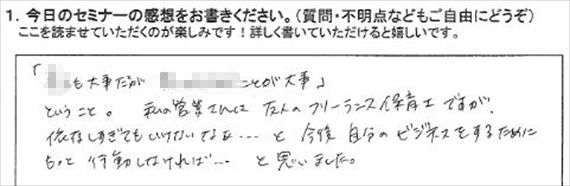 1. 今日のセミナーの感想をお書きください。(質問・不明点などもご自由にどうぞ)
ここを読ませていただくのが楽しみです！詳しく書いていただけると嬉しいです。
「 も大事だが ことが大事」
ということ。私の営業さんは友人のフリーランス保育士ですが、
依存しすぎてもいけないなぁ…と今後自分のビジネスをするために
もっと行動しなければ…と思いました。